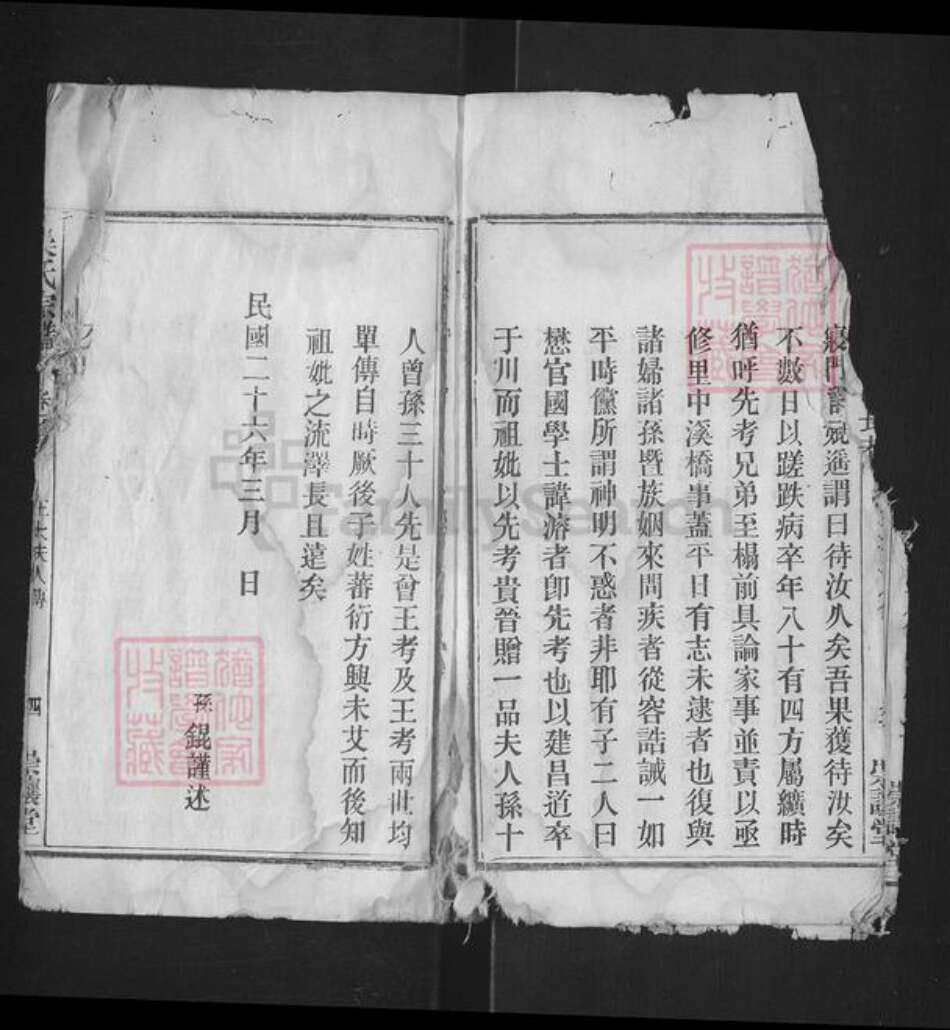 遥謂曰待汝久矣吾果獲待汝矣
不數日以蹉跌病卒年八十有四方屬纊時
猶呼先考兄弟至榻前具論家事並責以亟
修里中溪橋事蓋平日有志未逮者也復與
諸婦諸孫暨族姻來問疾者從容誥誡一如
平時儻所謂神明不惑者非耶有子二人曰
懋官國學士諱濬者卽先考也以建昌道卒
于川而祖妣以先考貴晉贈一品夫人孫十
人曾孫三十人先是曾王考及王考兩世均
單傳自時厥後子姓蕃衍方興未艾而後知
祖妣之流澤長且遠矣
民國二十六年三月 日
孫 錕謹述
氏宗譜
太夫人傳
四
崇讓堂
FamilySearch